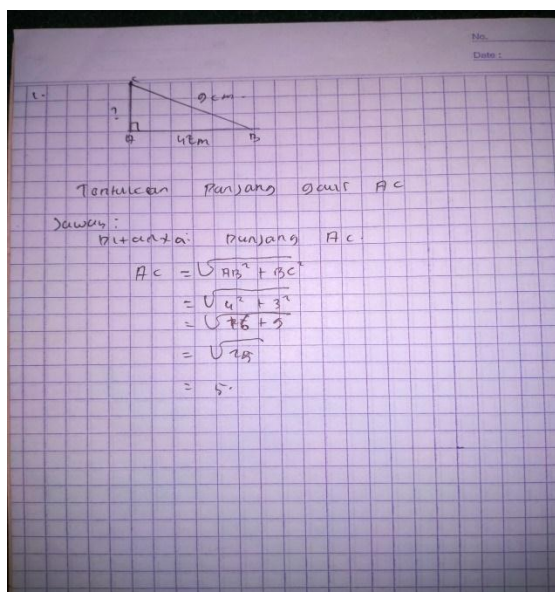 No.
Date :
1.
C
9 cm
?
A 4 cm B
Tentukan Panjang garis AC
Jawab :
Ditanya: Panjang AC.
AC = √AB² + BC²
= √4² + 3²
= √16 + 9
= √25
= 5.